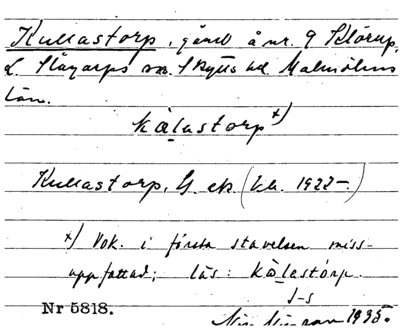 Kullastorp, gård å nr. 9 Klörup,
L. Slågarps sn. Skytts hd. Malmöhus
län.
kàlastorp x)
Kullastorp, G. ek. (kb. 1922-)
x) Vok. i första stavelsen miss-
uppfattad; läs: kàlastórp.
J-s
Nr 5818.
1935.